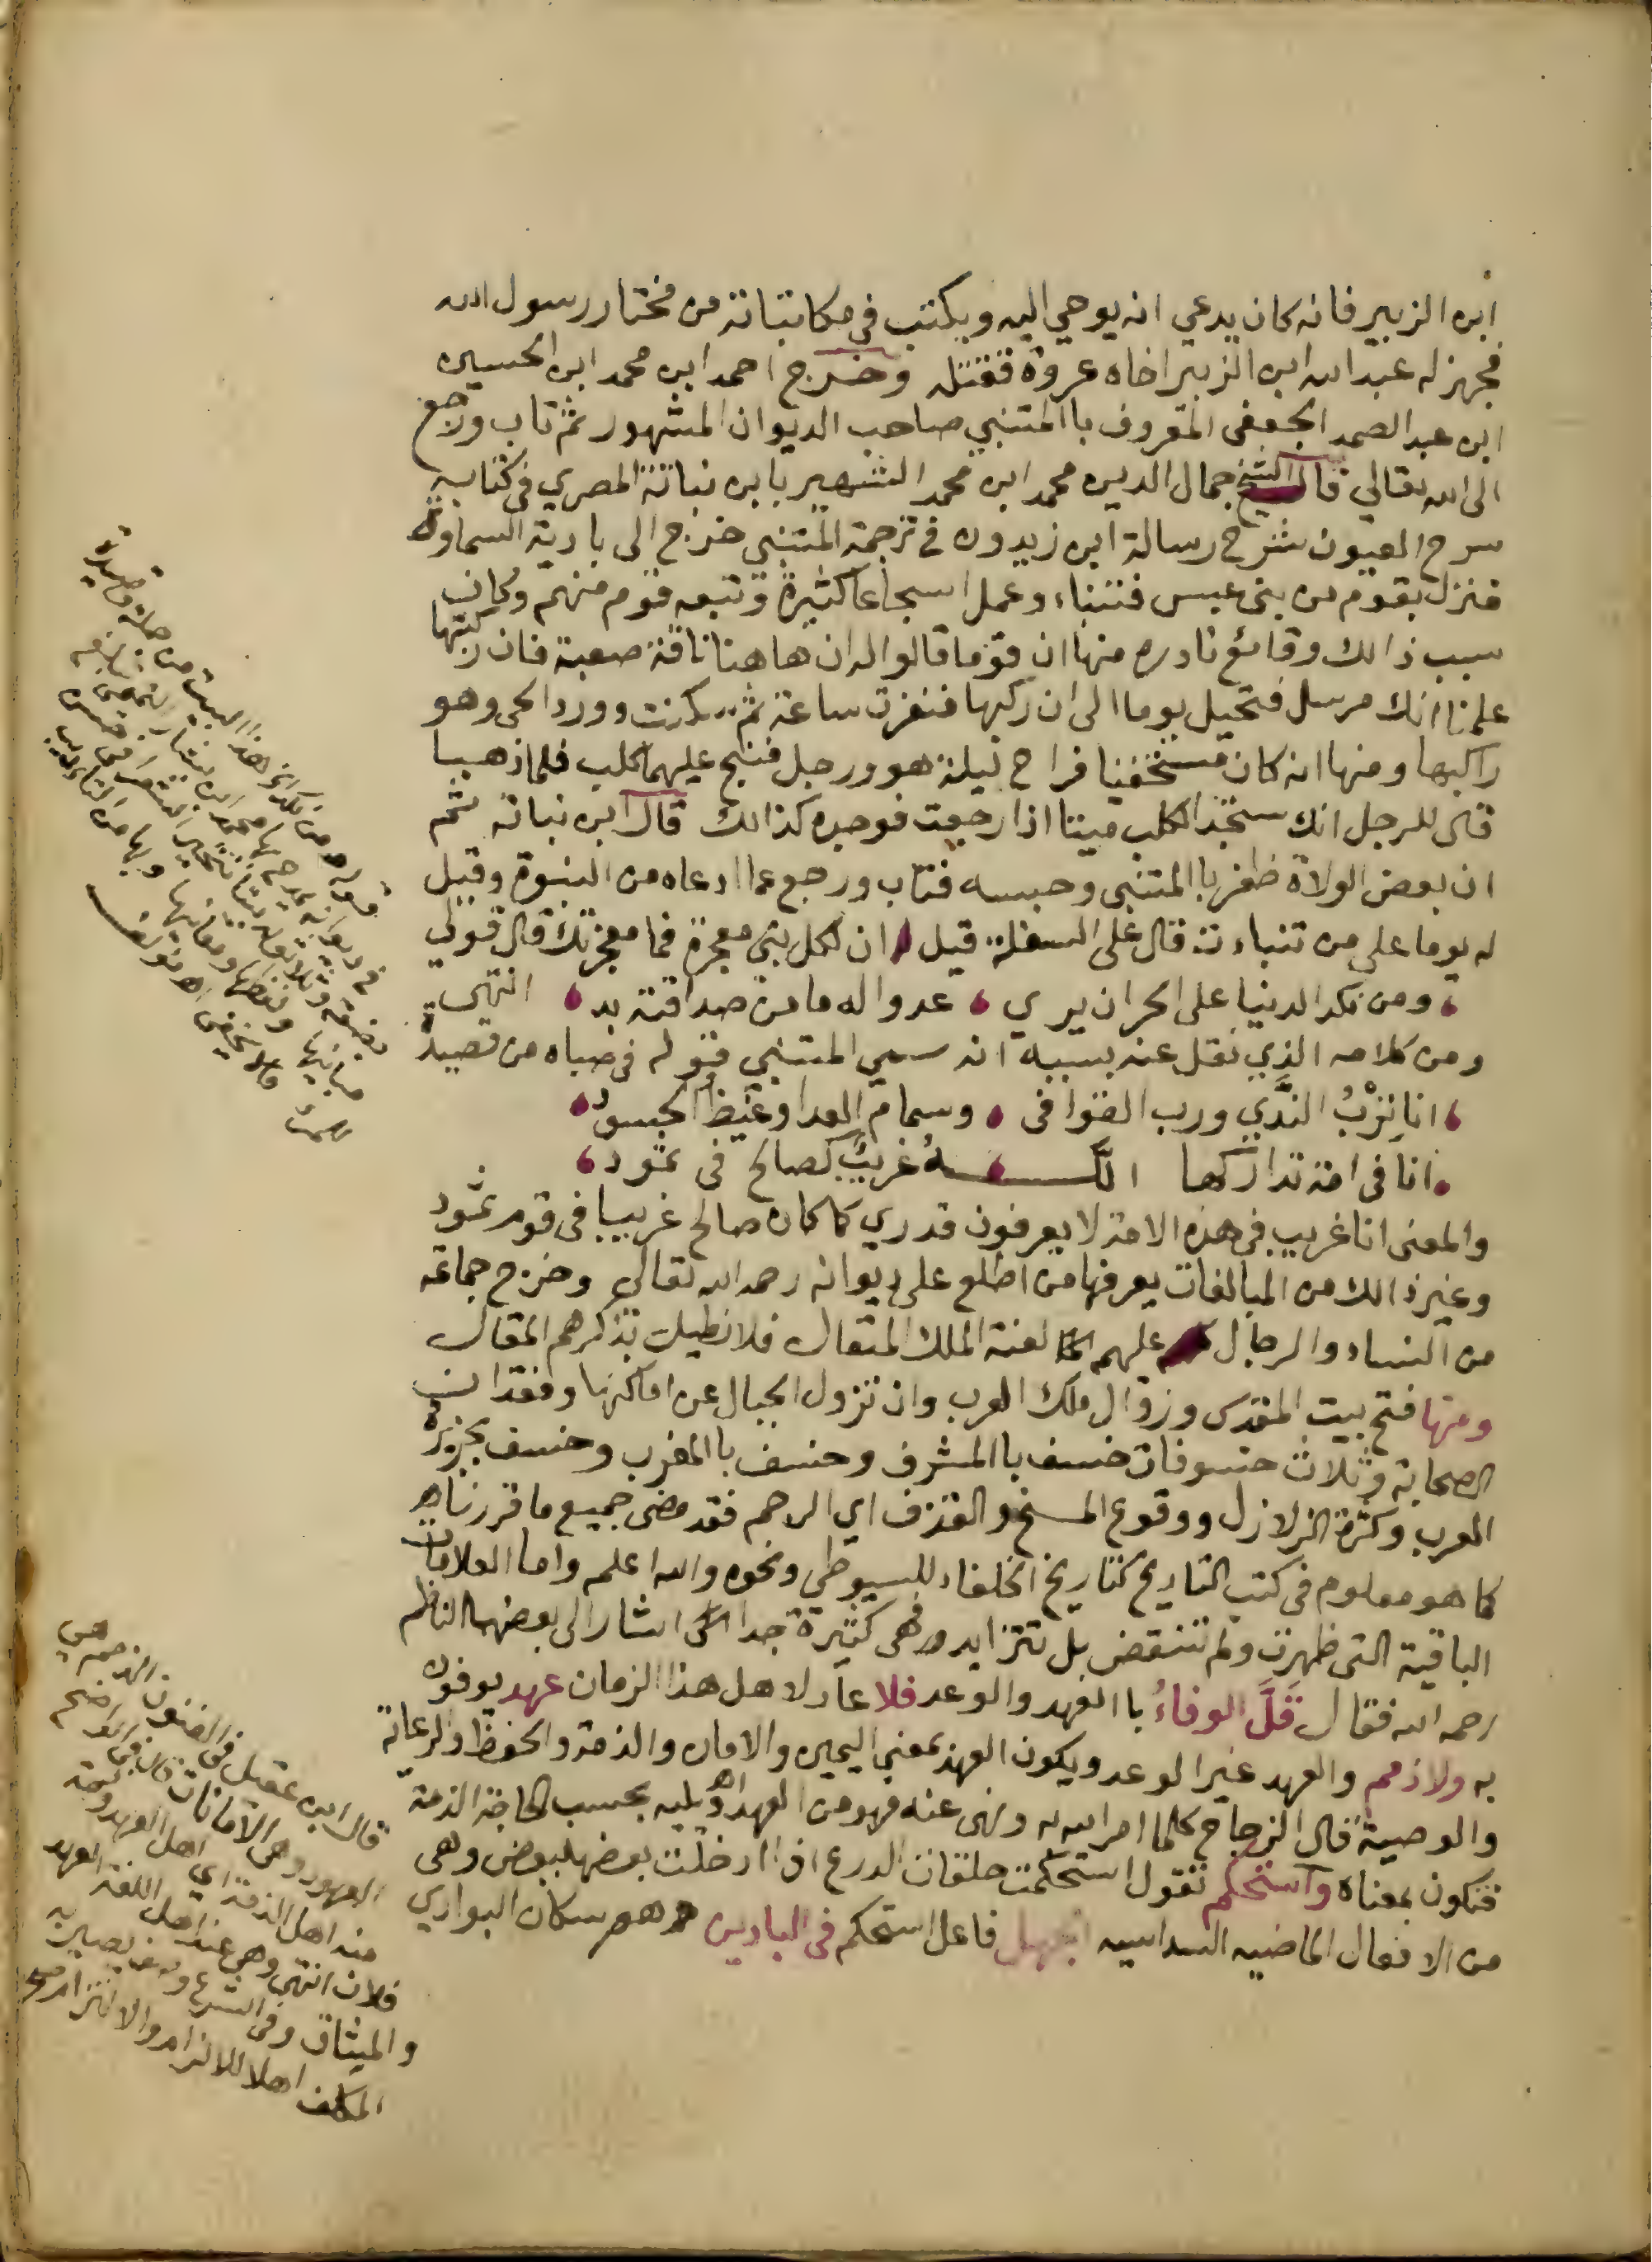 ابن الزبير فانه كان يدعي انه يوحي اليه ويكتب في مكاتباته من مختار رسول الله
فجهز له عبد الله ابن الزبير اخاه عروة فقتله وخرج احمد ابن محمد ابن الحسين
ابن عبد الصمد الجعفي المعروف باالمتنبي صاحب الديوان المشهور ثم تاب ورجع
الى الله تعالي قال الشيخ جمال الدين محمد ابن محمد الشهير بابن نباتة المصري في كتابه
سرح العيون شرح رسالة ابن زيدون في ترجمة المتنبي خرج الى بادية السماوة
فنزل بقوم من بني عبس فتنباء وعمل اسجاعا كثيرة وتبعه قوم منهم وكان
سبب ذالك وقائع نادره منها ان قوما قالوا له ان هاهنا ناقة صعبة فان ركبتها
علمنا انك مرسل فتحيل يوما الى ان ركبها فنفرت ساعة ثم سكنت وورد الحي وهو
راكبها ومنها انه كان مستخفيا فراح ليلة هو ورجل فنبح عليهما كلب فلما ذهبا
قال للرجل انك ستجد الكلب ميتا اذا رجعت فوجده كذالك قال ابن نباتة ثم
ان بعض الولاة ظفر باالمتنبي وحبسه فتاب ورجع عما ادعاه من النبوة وقيل
له يوما على من تنباءت قال على السفلة قيل ان لكل نبي معجزة فما معجزتك قال قولي
ومن نكد الدنيا على الحر ان يري عدوا له ما من صداقته بد انتهى
ومن كلامه الذي نقل عنه بسببه انه سمي المتنبي قوله في صباه من قصيدة
انا تِرْبُ النَّدَي ورب القوافي وسمام العدا وغيظ الحسود
انا في امة تداركها اللـــــه غريبٌ كصالح في ثمود
والمعنى انا غريب في هذه الامة لا يعرفون قدري كما كان صالح غريبا في قوم ثمود
وغير ذالك من المبالغات يعرفها من اطلع على ديوانه رحمه الله تعالى وخرج جماعة
من النساء والرجال عليهم لعنة الملك المتعال فلا نطيل بذكرهم المقال
ومنها فتح بيت المقدس وزوال ملك العرب وان تزول الجبال عن اماكنها وفقدان
الصحابة وثلاث خسوفات خسف باالمشرق وخسف باالمغرب وخسف بجزيرة
العرب وكثرة الزلازل ووقوع المسخ والقذف اي الرجم فقد مضى جميع ما قررناه
كما هو معلوم في كتب التاريخ كتاريخ الخلفاء للسيوطي ونحوه والله اعلم واما العلامات
الباقية التي ظهرت ولم تنقض بل تتزايد فهي كثيرة جدا اشار الى بعضها الناظم
رحمه الله فقال قَلَّ الوفاءُ باالعهد والوعد فلا عهد لاهل هذا الزمان عهد يوفون
به ولا ذمم والعهد غير الوعد ويكون العهد بمعنى اليمين والامان والذمة والحفظ والرعاية
والوصية قال الزجاج كلما امر الله به ونهى عنه فهو من العهد بحسب الذمة
فتكون بمعناه واستحكم تقول استحكمت حلقات الدرع اذا ادخلت بعضها ببعض وهي
من الافعال الماضيه السداسيه الجهل فاعل استحكم في البادين هم سكان البوادي
قوله ومن نكد الخ هذا البيت من جملة قصيدة
في ديوانه يمدح بها محمد ابن
قال ابن عقيل في الفنون الذمه هي
العهود وهي الامانات
منه اهل الذمة اي اهل العهد وذمة
فلان انتهى وهي عند اهل اللغة العهد
والميثاق وفي الشرع وصف يصير به
المكلف اهلا للالزام والالتزام